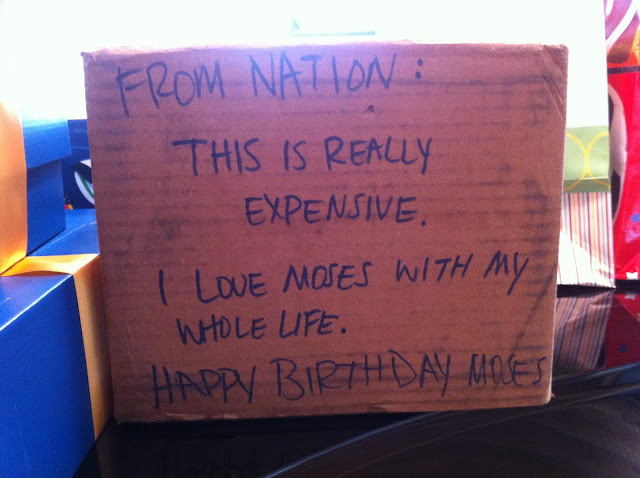 FROM NATION:
THIS IS REALLY
EXPENSIVE.
I LOVE MOSES WITH MY
WHOLE LIFE.
HAPPY BIRTHDAY MOSES